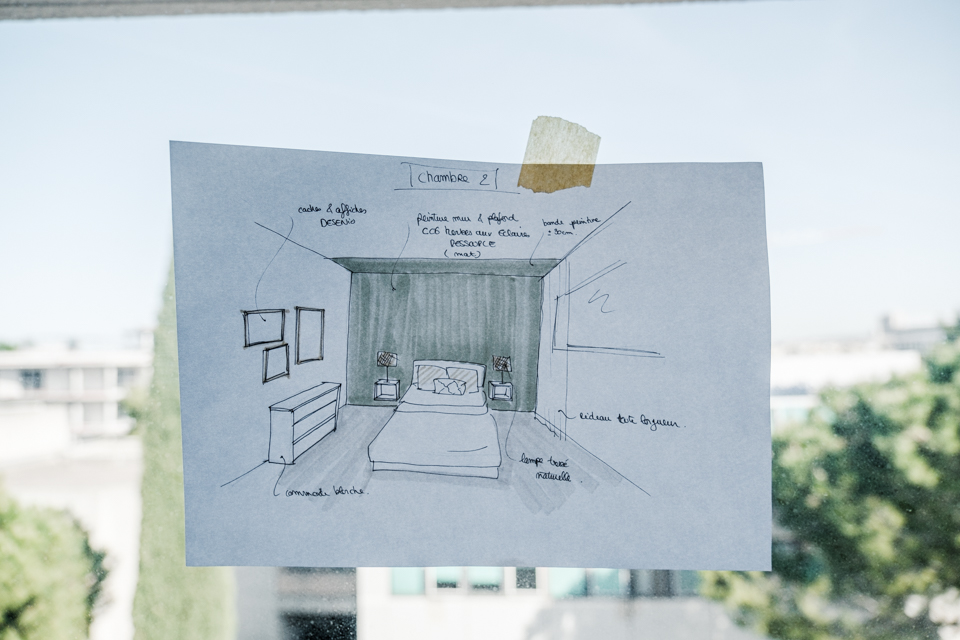 Chambre 2
cadres & affiches
DESENIO
peinture mur & plafond
CC6 herbes aux éclaires
RESSOURCE
(mat)
bande peinture
± 30cm.
rideau toute longueur.
lampe
naturelle
commode blanche.